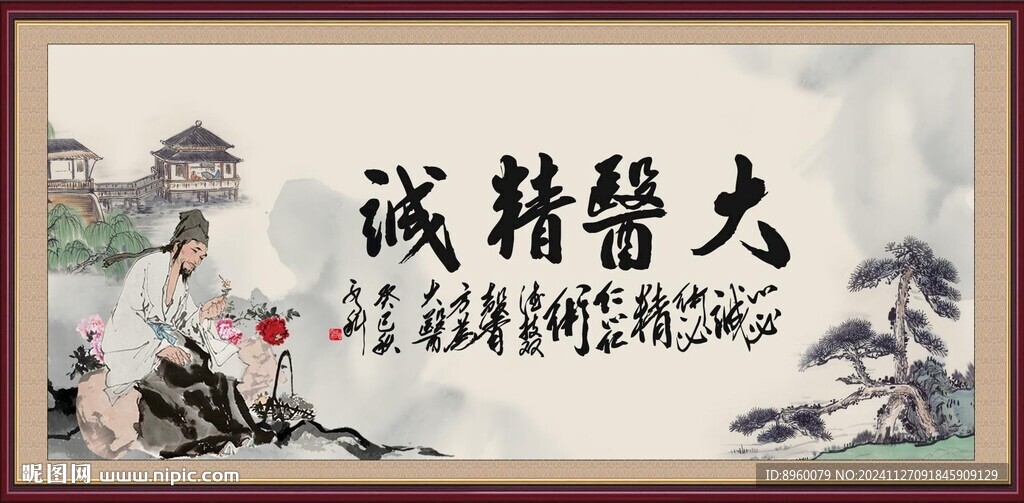 大醫精誠
心必
誠
術必
精
仁心仁
術
德技双
馨
方為
大醫
癸巳秋
昵图网 www.nipic.com
ID:8960079 NO:20241127091845909129